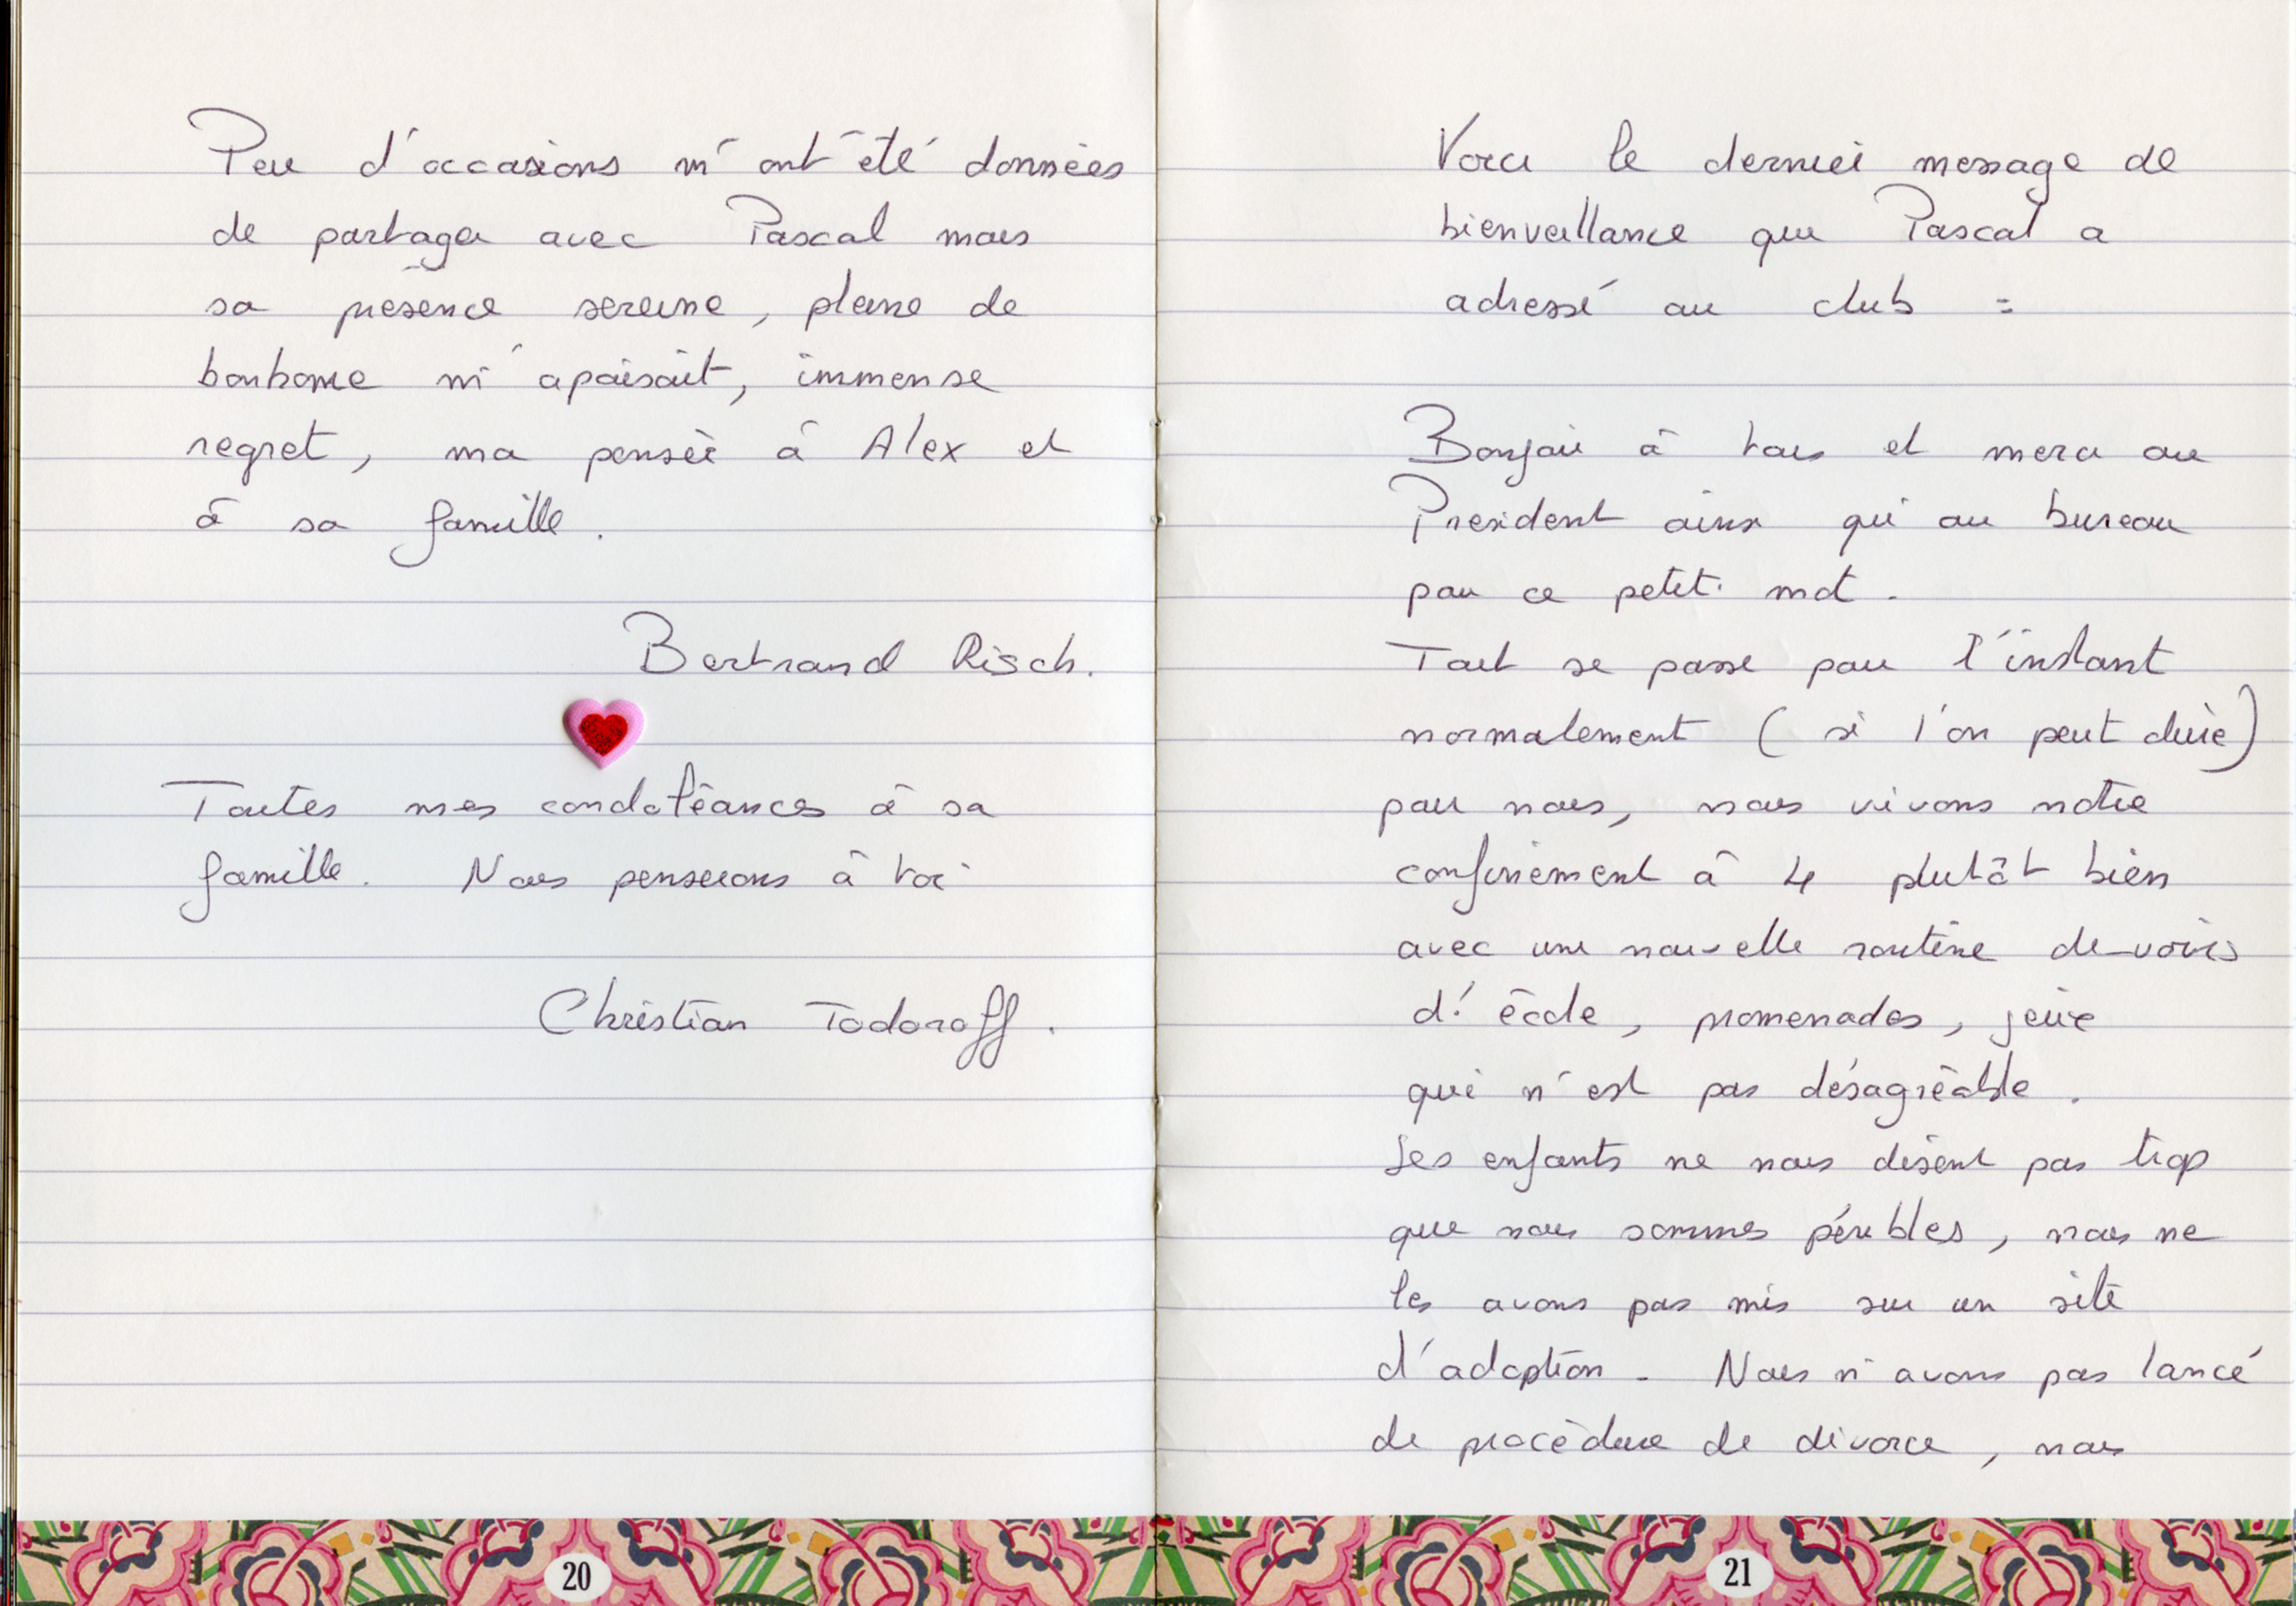 Peu d'occasions m'ont été données
de partager avec Pascal mais
sa présence sereine, pleine de
bonhomie m'apaisait, immense
regret, ma pensée à Alex et
à sa famille.
Bertrand Risch.
Toutes mes condoléances à sa
famille. Nous penserons à toi
Christian Todoroff.
20
Voici le dernier message de
bienveillance que Pascal a
adressé au club :
Bonjour à tous et merci au
Président ainsi qu'au bureau
pour ce petit mot.
Tout se passe pour l'instant
normalement (si l'on peut dire)
pour nous, nous vivons notre
confinement à 4 plutôt bien
avec une nouvelle routine devoirs
d'école, promenades, jeux
qui n'est pas désagréable.
Les enfants ne nous disent pas trop
que nous sommes pénibles, nous ne
les avons pas mis sur un site
d'adoption. Nous n'avons pas lancé
de procédure de divorce, nous
21